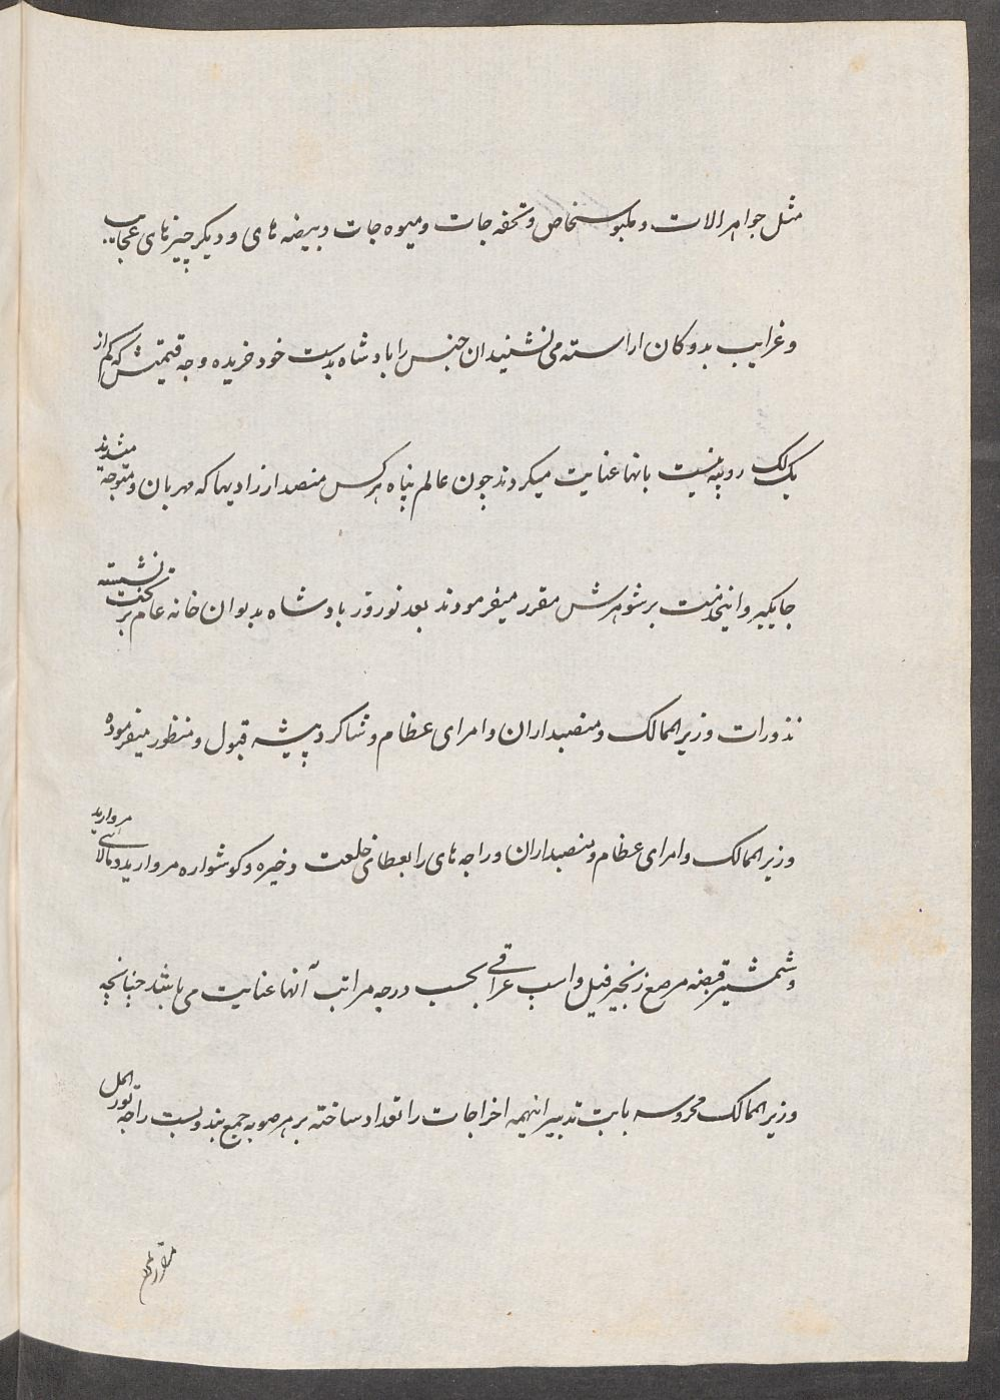 مثل جواهرالات و ملبوسخاص و تحفه جات و میوه جات و بیضه های و دیگر چیزهای عجایب
و غرایب بدوکان اراسته می نشنیدان جنس را بادشاه بدست خود خریده وجه قیمتش که کم از
یک لک روپیه نیست بانها عنایت میکردند چون عالم پناه هر کس منصدارزادیها که مهربان و متوجه میشدند
جایگیر و خدمت بر شوهرش مقرر میفرمودند بعد نوروز بادشاه بدیوان خانه عام بر تخت نشسته
نذورات وزیرالممالک و منصبداران و امرای عظام و شاکرد پیشه قبول و منظور میفرموده
وزیرالممالک و امرای عظام و منصبداران و راجه های را بعطای خلعت وخیره و کوشواره مروارید و مالای مروارید
و شمشیر قبضه مرصع زنجیر فیل و اسب عراقی بحسب درجه مراتب آنها عنایت می باشد چنانچه
وزیرالممالک محروسه بابت تدبیر اینهمه اخراجات را تعداد ساخته بر هر صوبه جمع بندوبست راجه تورالمل